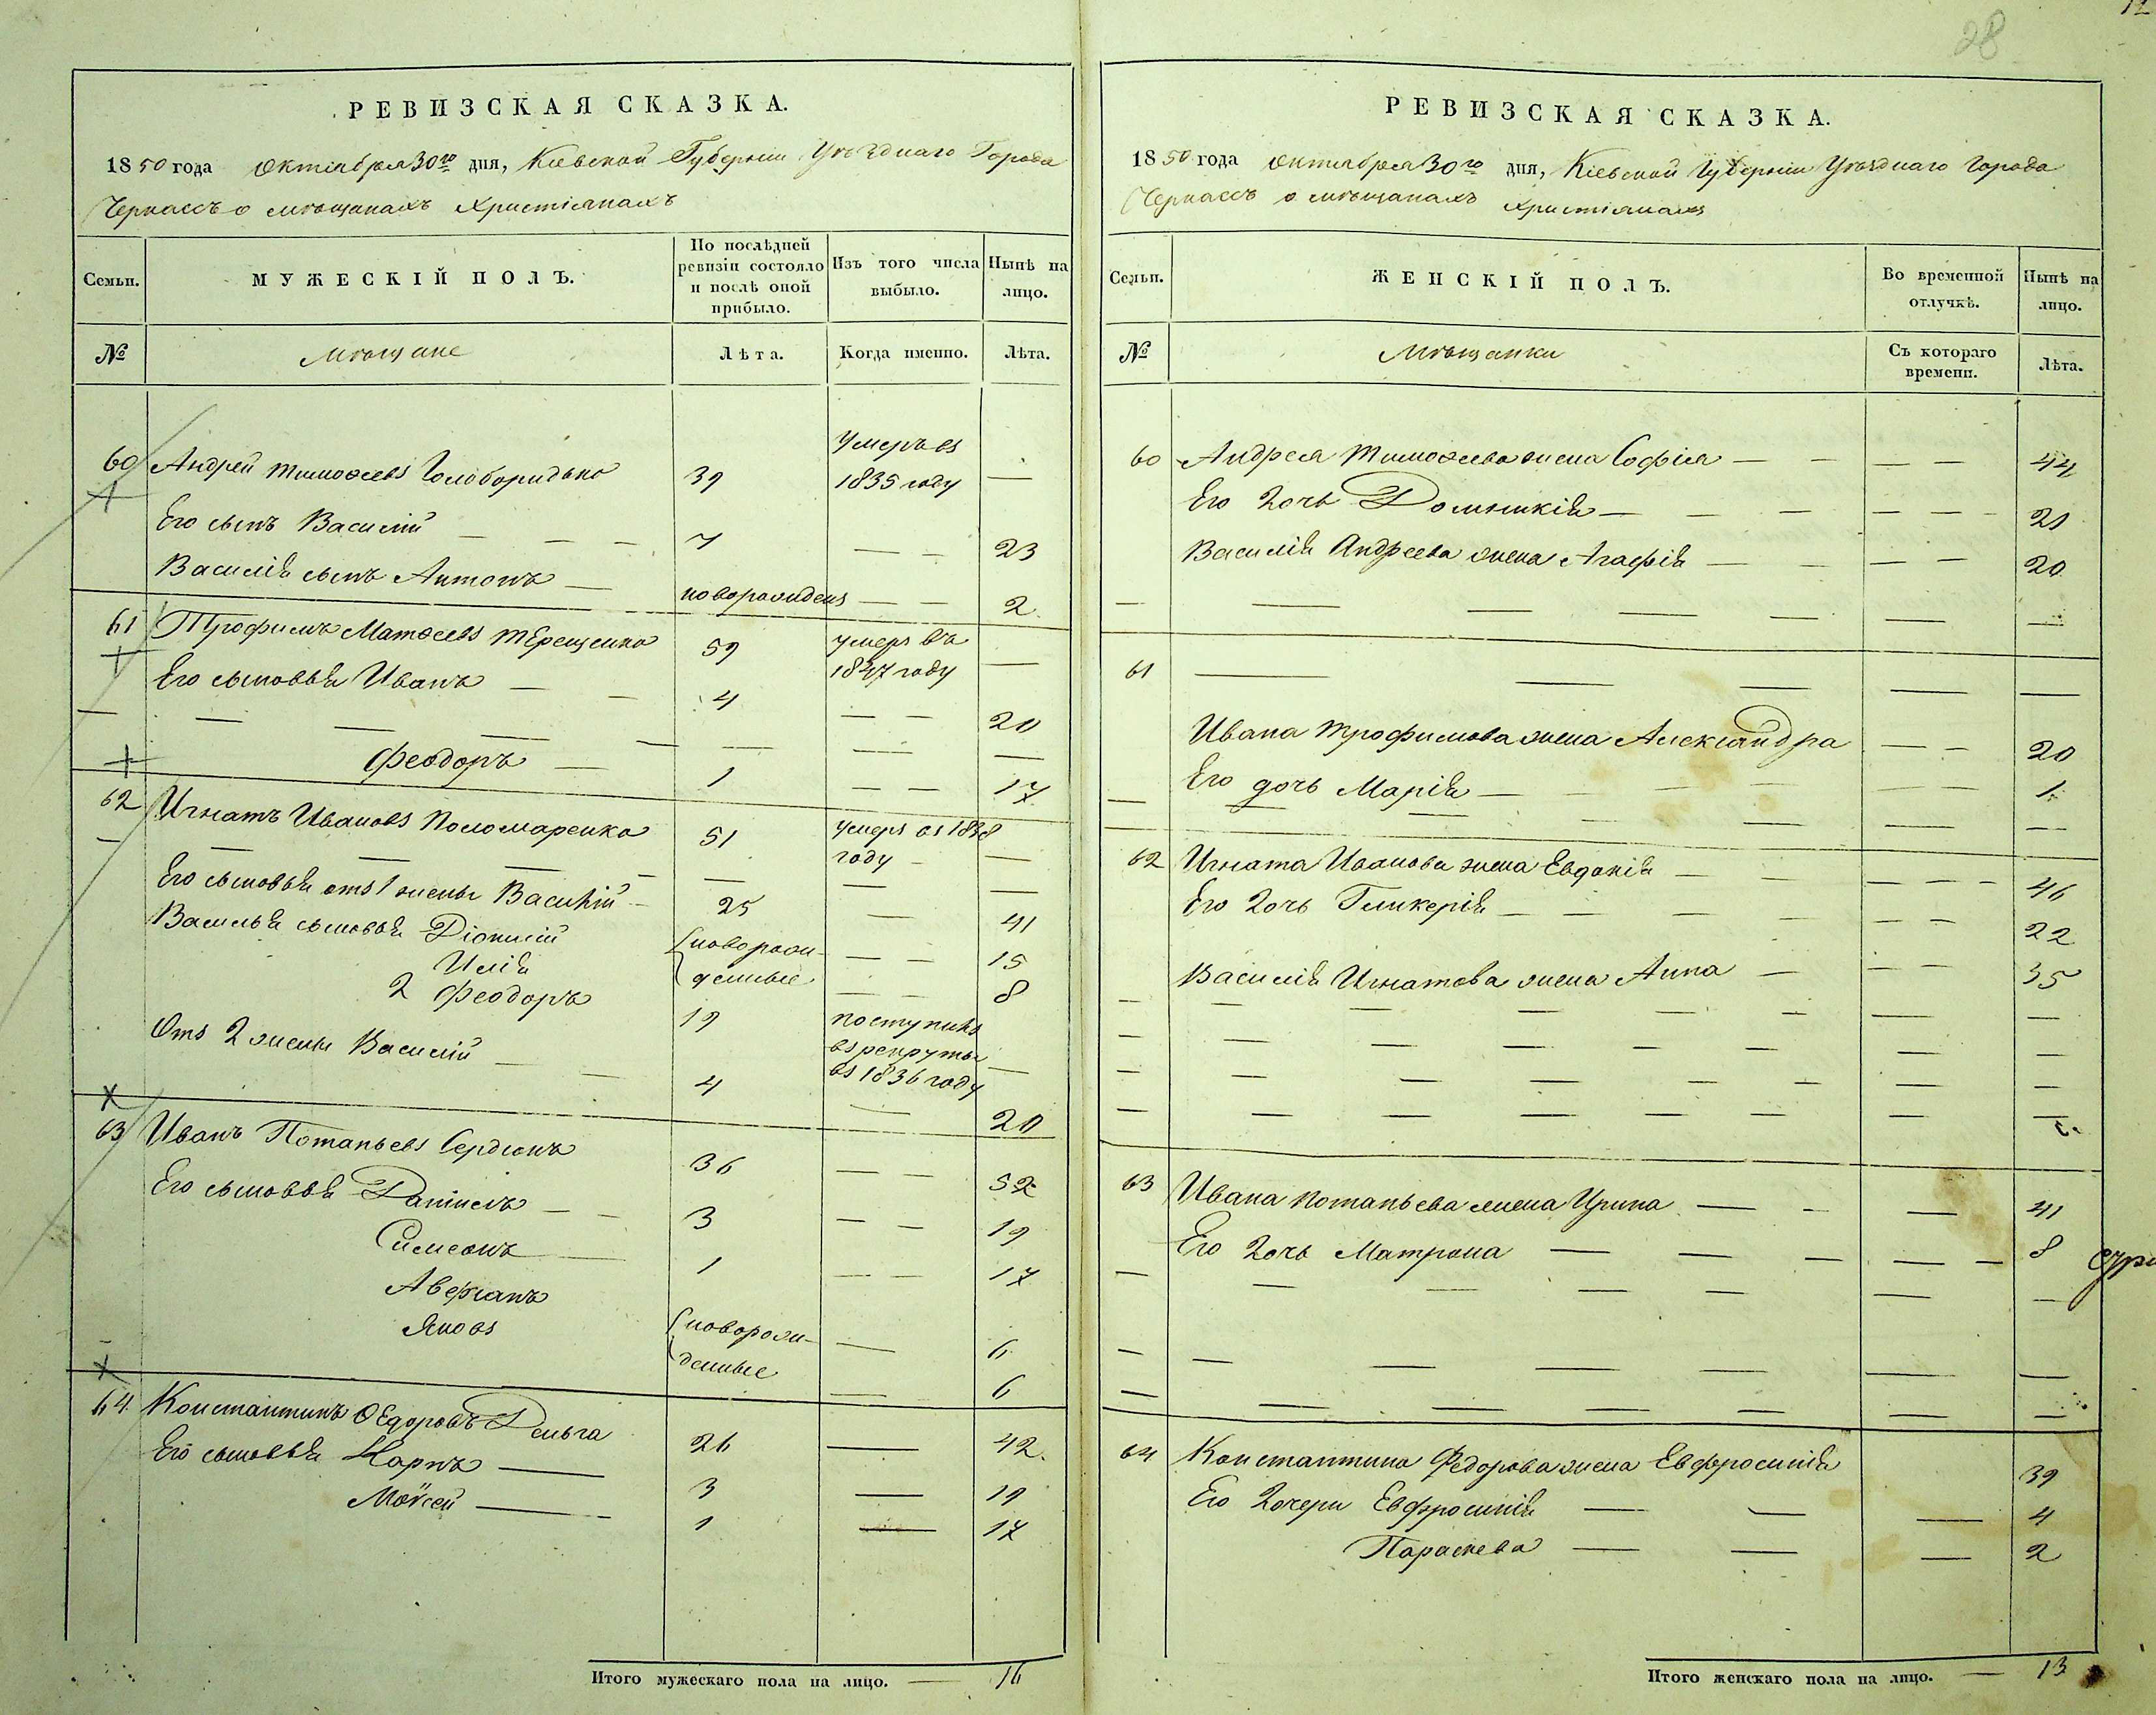 12
28
РЕВИЗСКАЯ СКАЗКА.
1850 года Октября 30го дня, Кіевской Губерніи Уѣзднаго Города
Черкассъ о мѣщанахъ Христіянахъ
Семьи.
МУЖЕСКІЙ ПОЛЪ.
По послѣдней ревизіи состояло и послѣ оной прибыло.
Изъ того числа выбыло.
Нынѣ на лицо.
№
Мѣщане
Лѣта.
Когда именно.
Лѣта.
60 Андрей Тимоѳеевъ Голобородько 39 Умеръ въ 1835 году —
Его сынъ Василій — — — 7 — — 23
Василія сынъ Антонъ — новорожденъ — — 2
61 Трофимъ Матѳеевъ Терещенко 59 умеръ въ 1847 году —
Его сыновья Иванъ — — 4 — — 20
Феодоръ — 1 — — 17
62 Игнатъ Ивановъ Поломаренко 51 умеръ въ 1838 году —
Его сыновья отъ 1 жены Василій — 25 — 41
Василья сыновья Діонисій новорожденные — — 15
Илія — — 8
2 Феодоръ 19 поступилъ въ рекруты въ 1836 году —
Отъ 2 жены Василій — — 4 — 20
63 Иванъ Потапьевъ Сердюкъ 36 — — 52
Его сыновья Даніилъ — — 3 — — 19
Симеонъ — 1 — — 17
Аверіанъ новорожденные — 6
Яковъ — 6
64 Константинъ Ѳедоровъ Деньга 26 — 42.
Его сыновья Карпъ — 3 — 19
Моѵсей — 1 — 17
Итого мужескаго пола на лицо. — 16
РЕВИЗСКАЯ СКАЗКА.
1850 года Октября 30го дня, Кіевской Губерніи Уѣзднаго Города
Черкассъ о мѣщанахъ Христіянахъ
Семьи.
ЖЕНСКІЙ ПОЛЪ.
Во временной отлучкѣ.
Нынѣ на лицо.
№
Мѣщанки
Съ котораго времени.
Лѣта.
60 Андрея Тимоѳеева жена Софія — — — — 44
Его дочь Домникія — — — — — — 21
Василія Андреева жена Агафія — — — — 20
61 — — — — —
Ивана Трофимова жена Александра — — 20
Его дочь Марія — — — — — — 1
62 Игната Иванова жена Евдокія — — — — — 46
Его дочь Гликерія — — — — — — 22
Василія Игнатова жена Анна — — — 35
63 Ивана Потапьева жена Ирина — — — 41
Его дочь Матрона — — — — — 8
64 Константина Федорова жена Евфросинія 39
Его дочери Евфросинія — — — 4
Параскева — — — 2
Итого женскаго пола на лицо. — 13